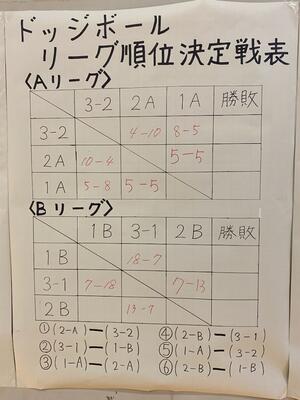 ドッジボール
リーグ順位決定戦表
〈Aリーグ〉
3-2 2A 1A 勝敗
3-2 4-10 8-5
2A 10-4 5-5
1A 5-8 5-5
〈Bリーグ〉
1B 3-1 2B 勝敗
1B 18-7
3-1 7-18 7-13
2B 13-7
①(2-A)ー(3-2) ④(2-B)ー(3-1)
②(3-1)ー(1-B) ⑤(1-A)ー(3-2)
③(1-A)ー(2-A) ⑥(2-B)ー(1-B)